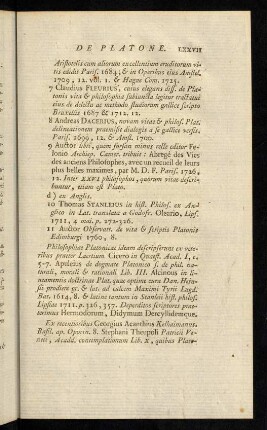 DE PLATONE. LXXVII
Aristotelis cum aliorum excellentium eruditorum vi-
tis edidit Paris. 1684; & in Operibus eius Amstel.
1709, 12. vol. 1. & Hagae Com. 1725.
7 Claudius FLEURIUS, cuius elegans diss. de Pla-
tonis vita & philosophia subiuncta legitur tractatui
eius de delectu ac methodo studiorum gallice scripto
Bruxellis 1687 & 1712. 12.
8 Andreas DACERIUS, novam vitae & philos. Plat.
delineationem praemisit dialogis a se gallice versis.
Paris. 1699, 12. & Amst. 1700.
9 Auctor libri, quem sorsim minus recte editor Fe-
lonio Archiep. Camer. tribuit: Abregé des Vies
des anciens Philosophes, avec un recueil de leurs
plus belles maximes, par M. D. F. Paris. 1726,
12. Inter XXVI philosophos, quorum vitae descri-
buntur, etiam est Plato.
d) ex Anglis.
10 Thomas STANLEIUS in hist. Philos. ex An-
glico in Lat. translata a Godofr. Oleario, Lips.
1711, 4 mai. p. 272-326.
11 Auctor Observatt. de vita & scriptis Platonis
Edimburgi 1760, 8.
Philosophiae Platonicae ideam descripserunt ex vete-
ribus praeter Laertium Cicero in Quaest. Acad. I, c.
5-7. Apuleius de dogmate Platonico s. de phil. na-
turali, morali & rationali Lib. III. Alcinous in li-
neamentis doctrinae Plat. quae optime cura Dan. Hein-
sii prodiere gr. & lat. ad calcem Maximi Tyrii Lugd.
Bat. 1614, 8. & latine tantum in Stanleii hist. philos.
Lipsiae 1711. p. 326, 357. Deperditos scriptores prae-
terimus Hermodorum, Didymum Dercyllidemque.
Ex recentioribus Georgius Acanthius Kelhaimanus.
Basil. ap. Oporin. 8. Stephani Theupoli Patricii Ve-
neti, Acadd. contemplationum Lib. X, quibus Plato-